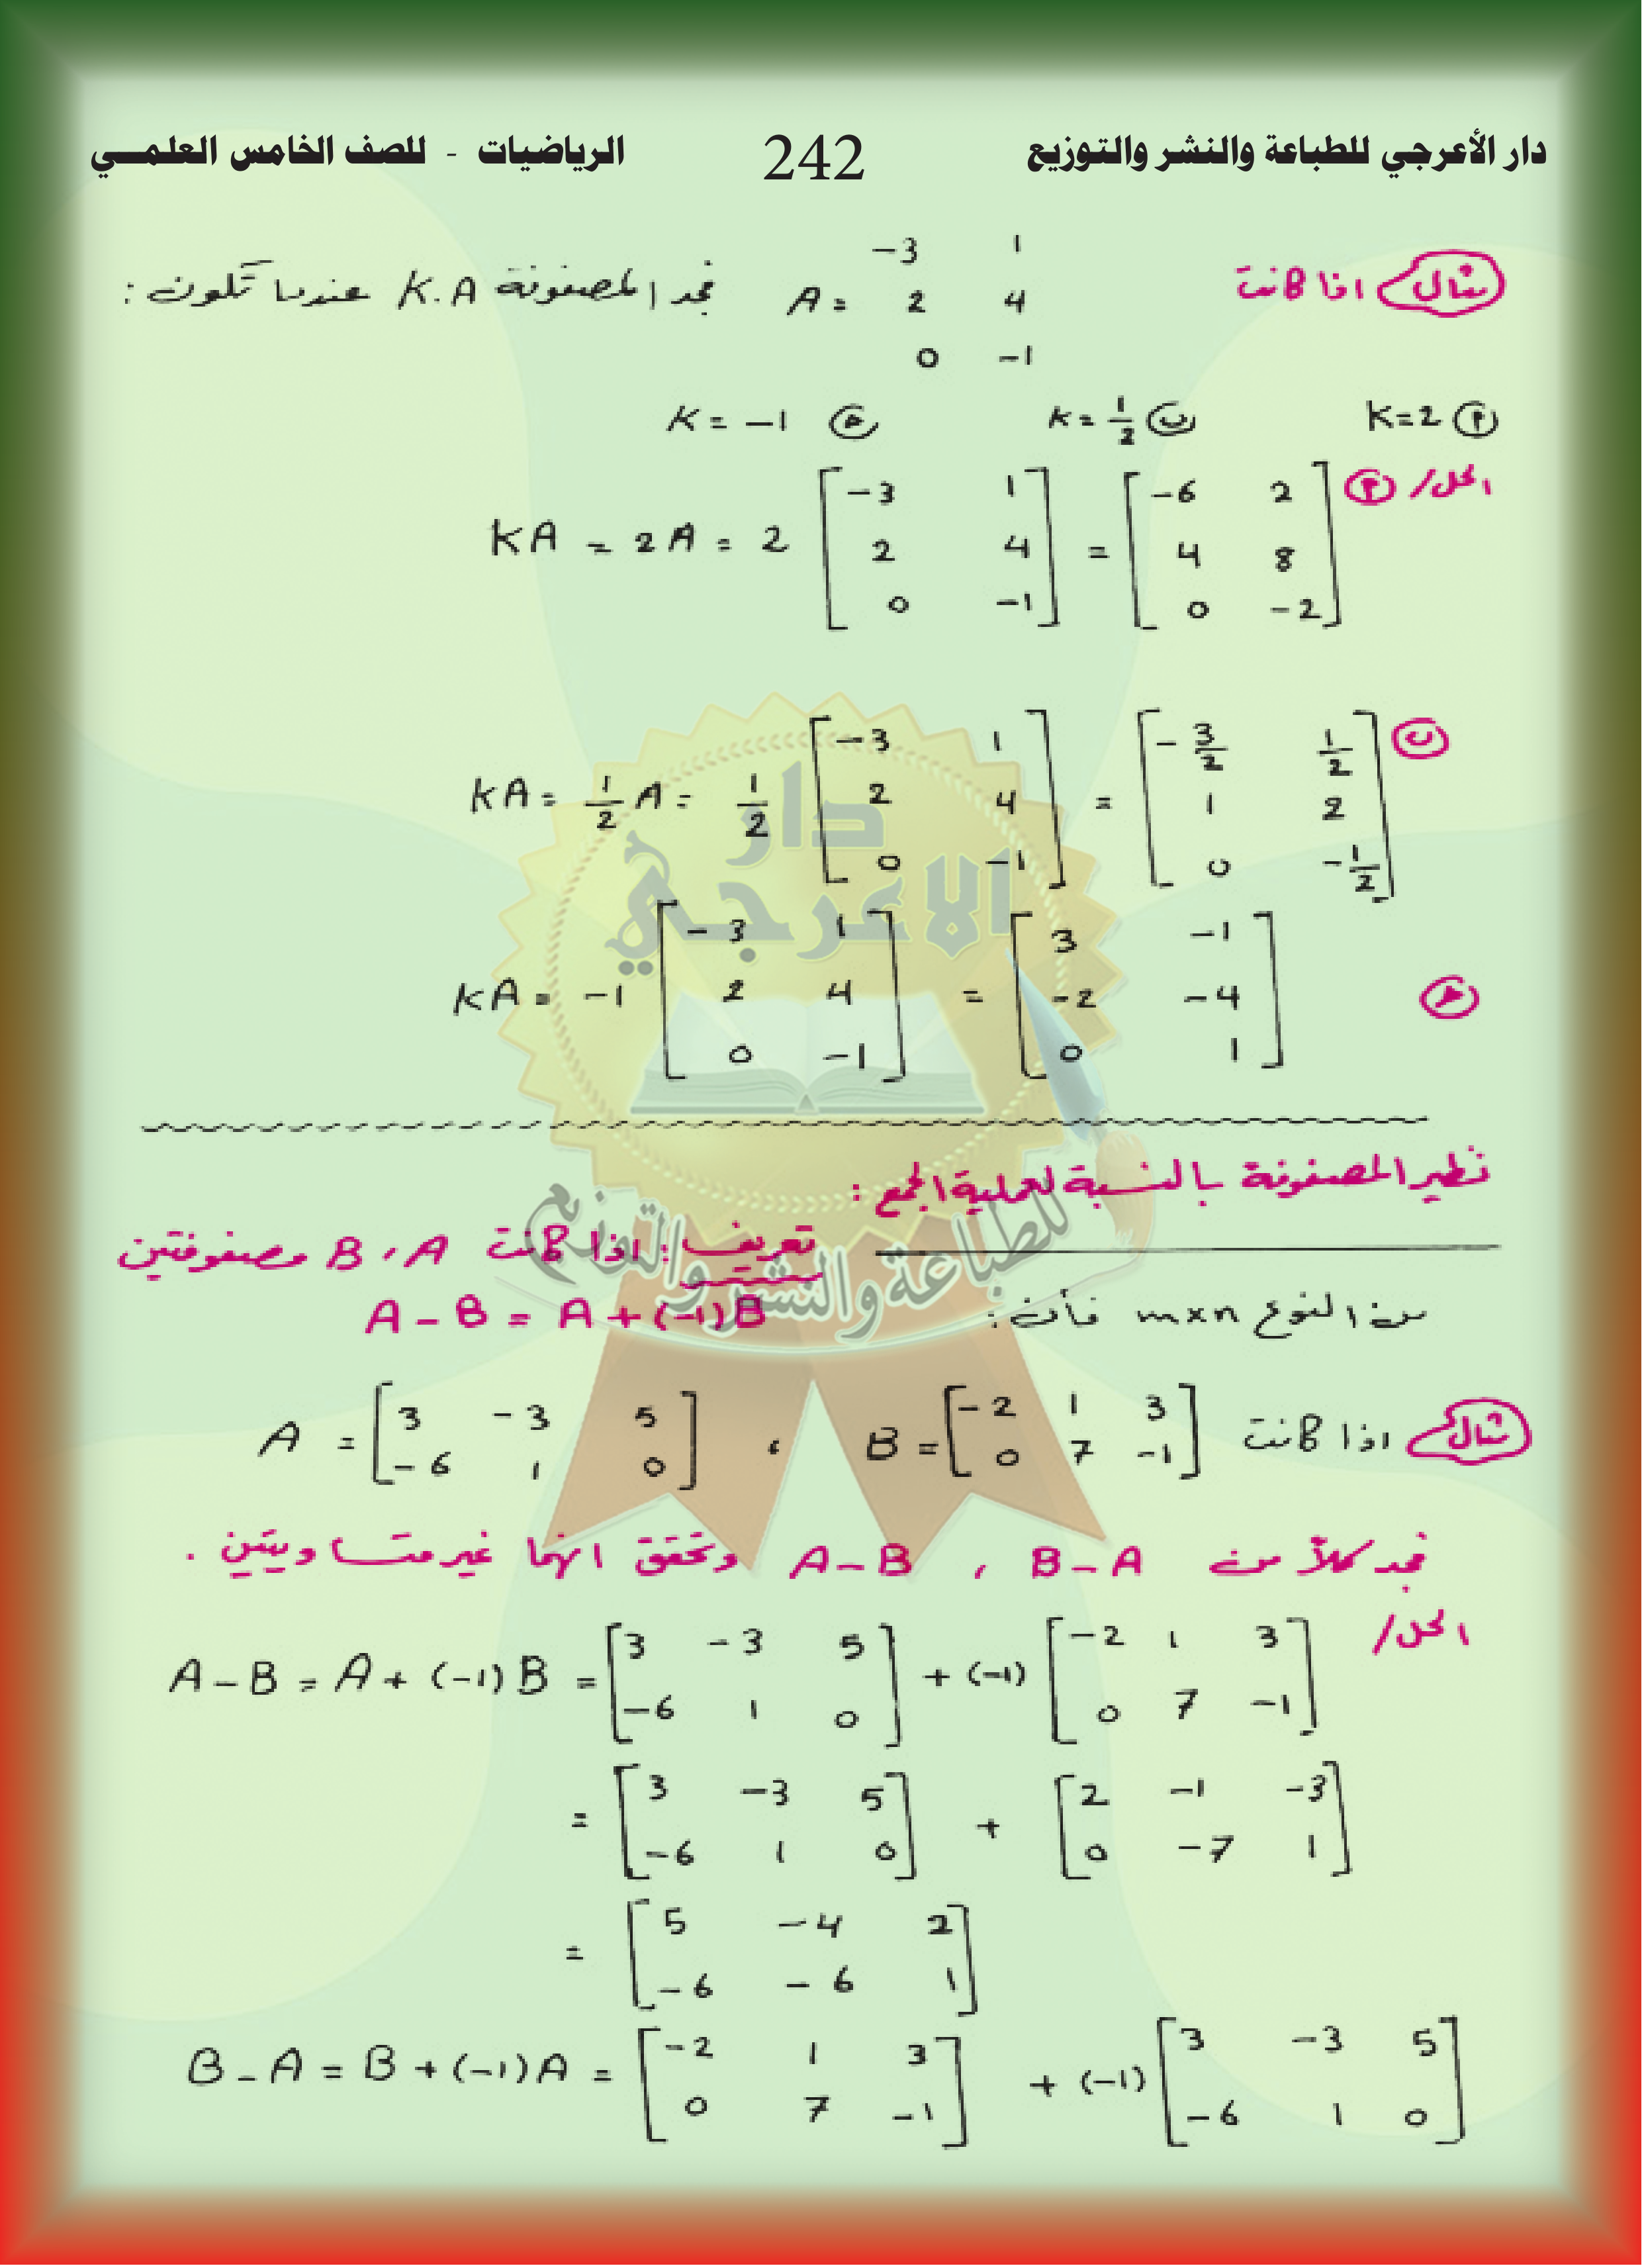 دار الأعرجي للطباعة والنشر والتوزيع 242 الرياضيات - للصف الخامس العلمـــي
مثال اذا كانت A = نجد المصفوفة K.A عندما تكون :
-3 1
2 4
0 -1
أ K=2 ب K=1/2 ج K=-1
الحل/ أ
KA = 2A = 2 [-3 1; 2 4; 0 -1] = [-6 2; 4 8; 0 -2]
ب KA = 1/2 A = 1/2 [-3 1; 2 4; 0 -1] = [-3/2 1/2; 1 2; 0 -1/2]
ج KA = -1 [-3 1; 2 4; 0 -1] = [3 -1; -2 -4; 0 1]
نظير المصفوفة بالنسبة لعملية الجمع :
تعريف : اذا كانت B ، A مصفوفتين
من النوع m×n فأن : A-B = A+(-1)B
مثال اذا كانت B = [-2 1 3; 0 7 -1] ، A = [3 -3 5; -6 1 0]
نجد كلاً من B-A ، A-B وتحقق انهما غير متساويتين .
الحل/
A-B = A+(-1)B = [3 -3 5; -6 1 0] + (-1) [-2 1 3; 0 7 -1]
= [3 -3 5; -6 1 0] + [2 -1 -3; 0 -7 1]
= [5 -4 2; -6 -6 1]
B-A = B+(-1)A = [-2 1 3; 0 7 -1] + (-1) [3 -3 5; -6 1 0]
دار
الاعرجي
للطباعة والنشر والتوزيع